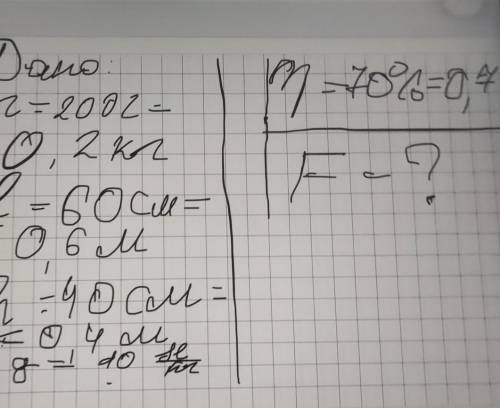 Дано:
= 200г =
0,2 кг
= 60 см =
0,6 м
h = 40 см =
= 0,4 м
g = 10
η = 70% = 0,7
F - ?